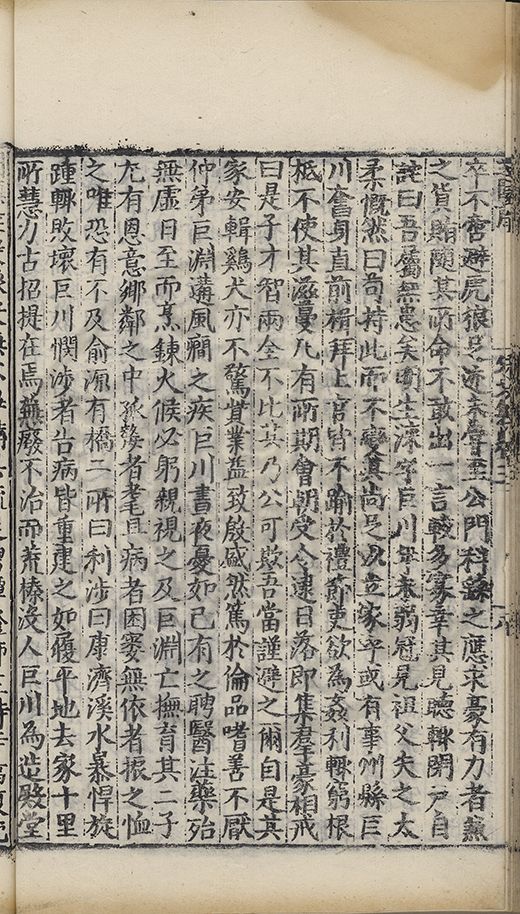 卒不啻避虎狼足迹未嘗至公門科繇之應求豪有力者無
之貨賄隨其所命不敢出一言較多寡幸其見聽輒閉戶自
詫曰吾屬無患矣喻生涑字巨川年未弱冠見祖父失之太
柔慨然曰苟持此而不變其尚足以立家乎或有事州縣巨
川奮身直前楫拜上官皆不踰於禮節吏欲為姦利輒窮根
柢不使其滋蔓凡有所期會朝受令逮日落即集羣豪相戒
曰是子才智兩全不比其乃公可欺吾當謹避之爾自是其
家安輯雞犬亦不驚貲業益致殷盛然篤於倫品嗜善不厭
仲弟巨淵遘風癇之疾巨川晝夜憂如己有之聘醫注藥殆
無虛日至而烹鍊火候必躬親視之及巨淵亡撫育其二子
尤有恩意鄉鄰之中孤嫠者耄且病者困窶無依者振之恤
之唯恐有不及俞源有橋二所曰利涉曰康濟溪水暴悍旋
踵輒敗壞巨川憫涉者告病皆重建之如履平地去家十里
所慧力古招提在焉蕪廢不治而荒榛沒人巨川為造殿堂